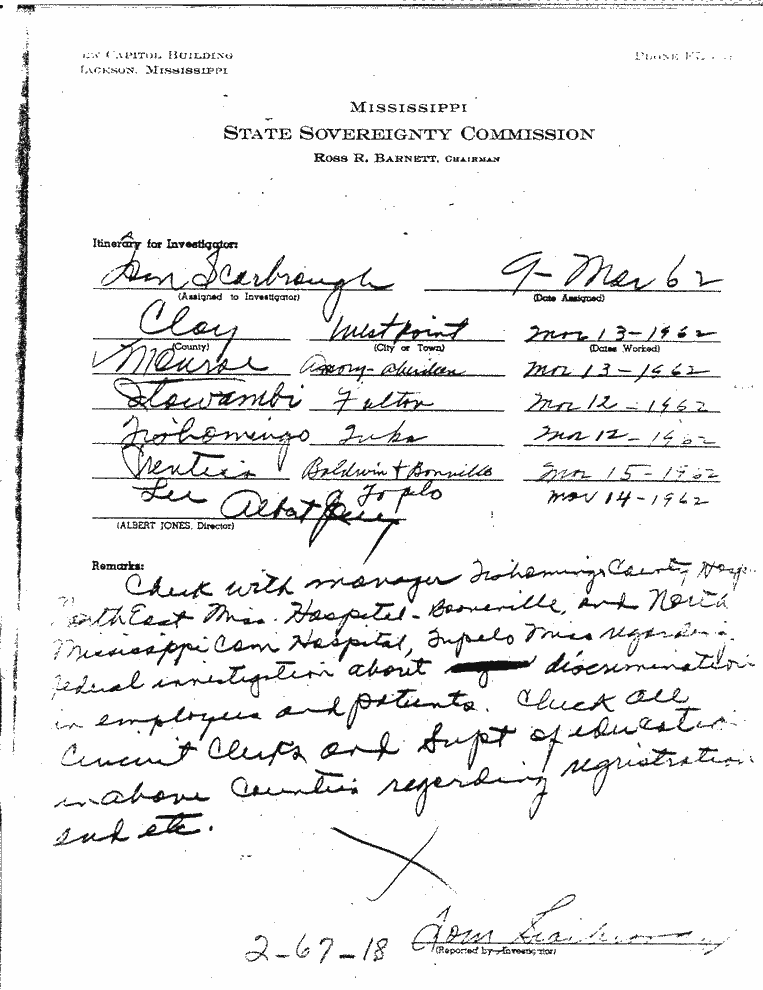 CAPITOL BUILDING PHONE
JACKSON, MISSISSIPPI
MISSISSIPPI
STATE SOVEREIGNTY COMMISSION
ROSS R. BARNETT, CHAIRMAN
Itinerary for Investigator:
Tom Scarbrough 9- Mar 62
(Assigned to Investigator) (Date Assigned)
Clay West Point Mar 13-1962
(County) (City or Town) (Dates Worked)
Monroe Amory-Aberdeen Mar 13-1962
Itawambi Fulton Mar 12-1962
Tishomingo Iuka Mar 12-1962
Prentiss Baldwin & Bonville Mar 15-1962
Lee Toplo Mar 14-1962
Albert Jones
(ALBERT JONES, Director)
Remarks:
Check with manager Tishomingo County Hosp.
North East Miss. Hospital-Booneville, and North
Mississippi Com Hospital, Tupelo Miss regarding
federal investigation about discrimination
in employees and patients. Check all
Circuit Clerks and Supt of education
in above Counties regarding registration
and etc.
2-67-18 Tom Scarbrough
(Reported by Investigator)